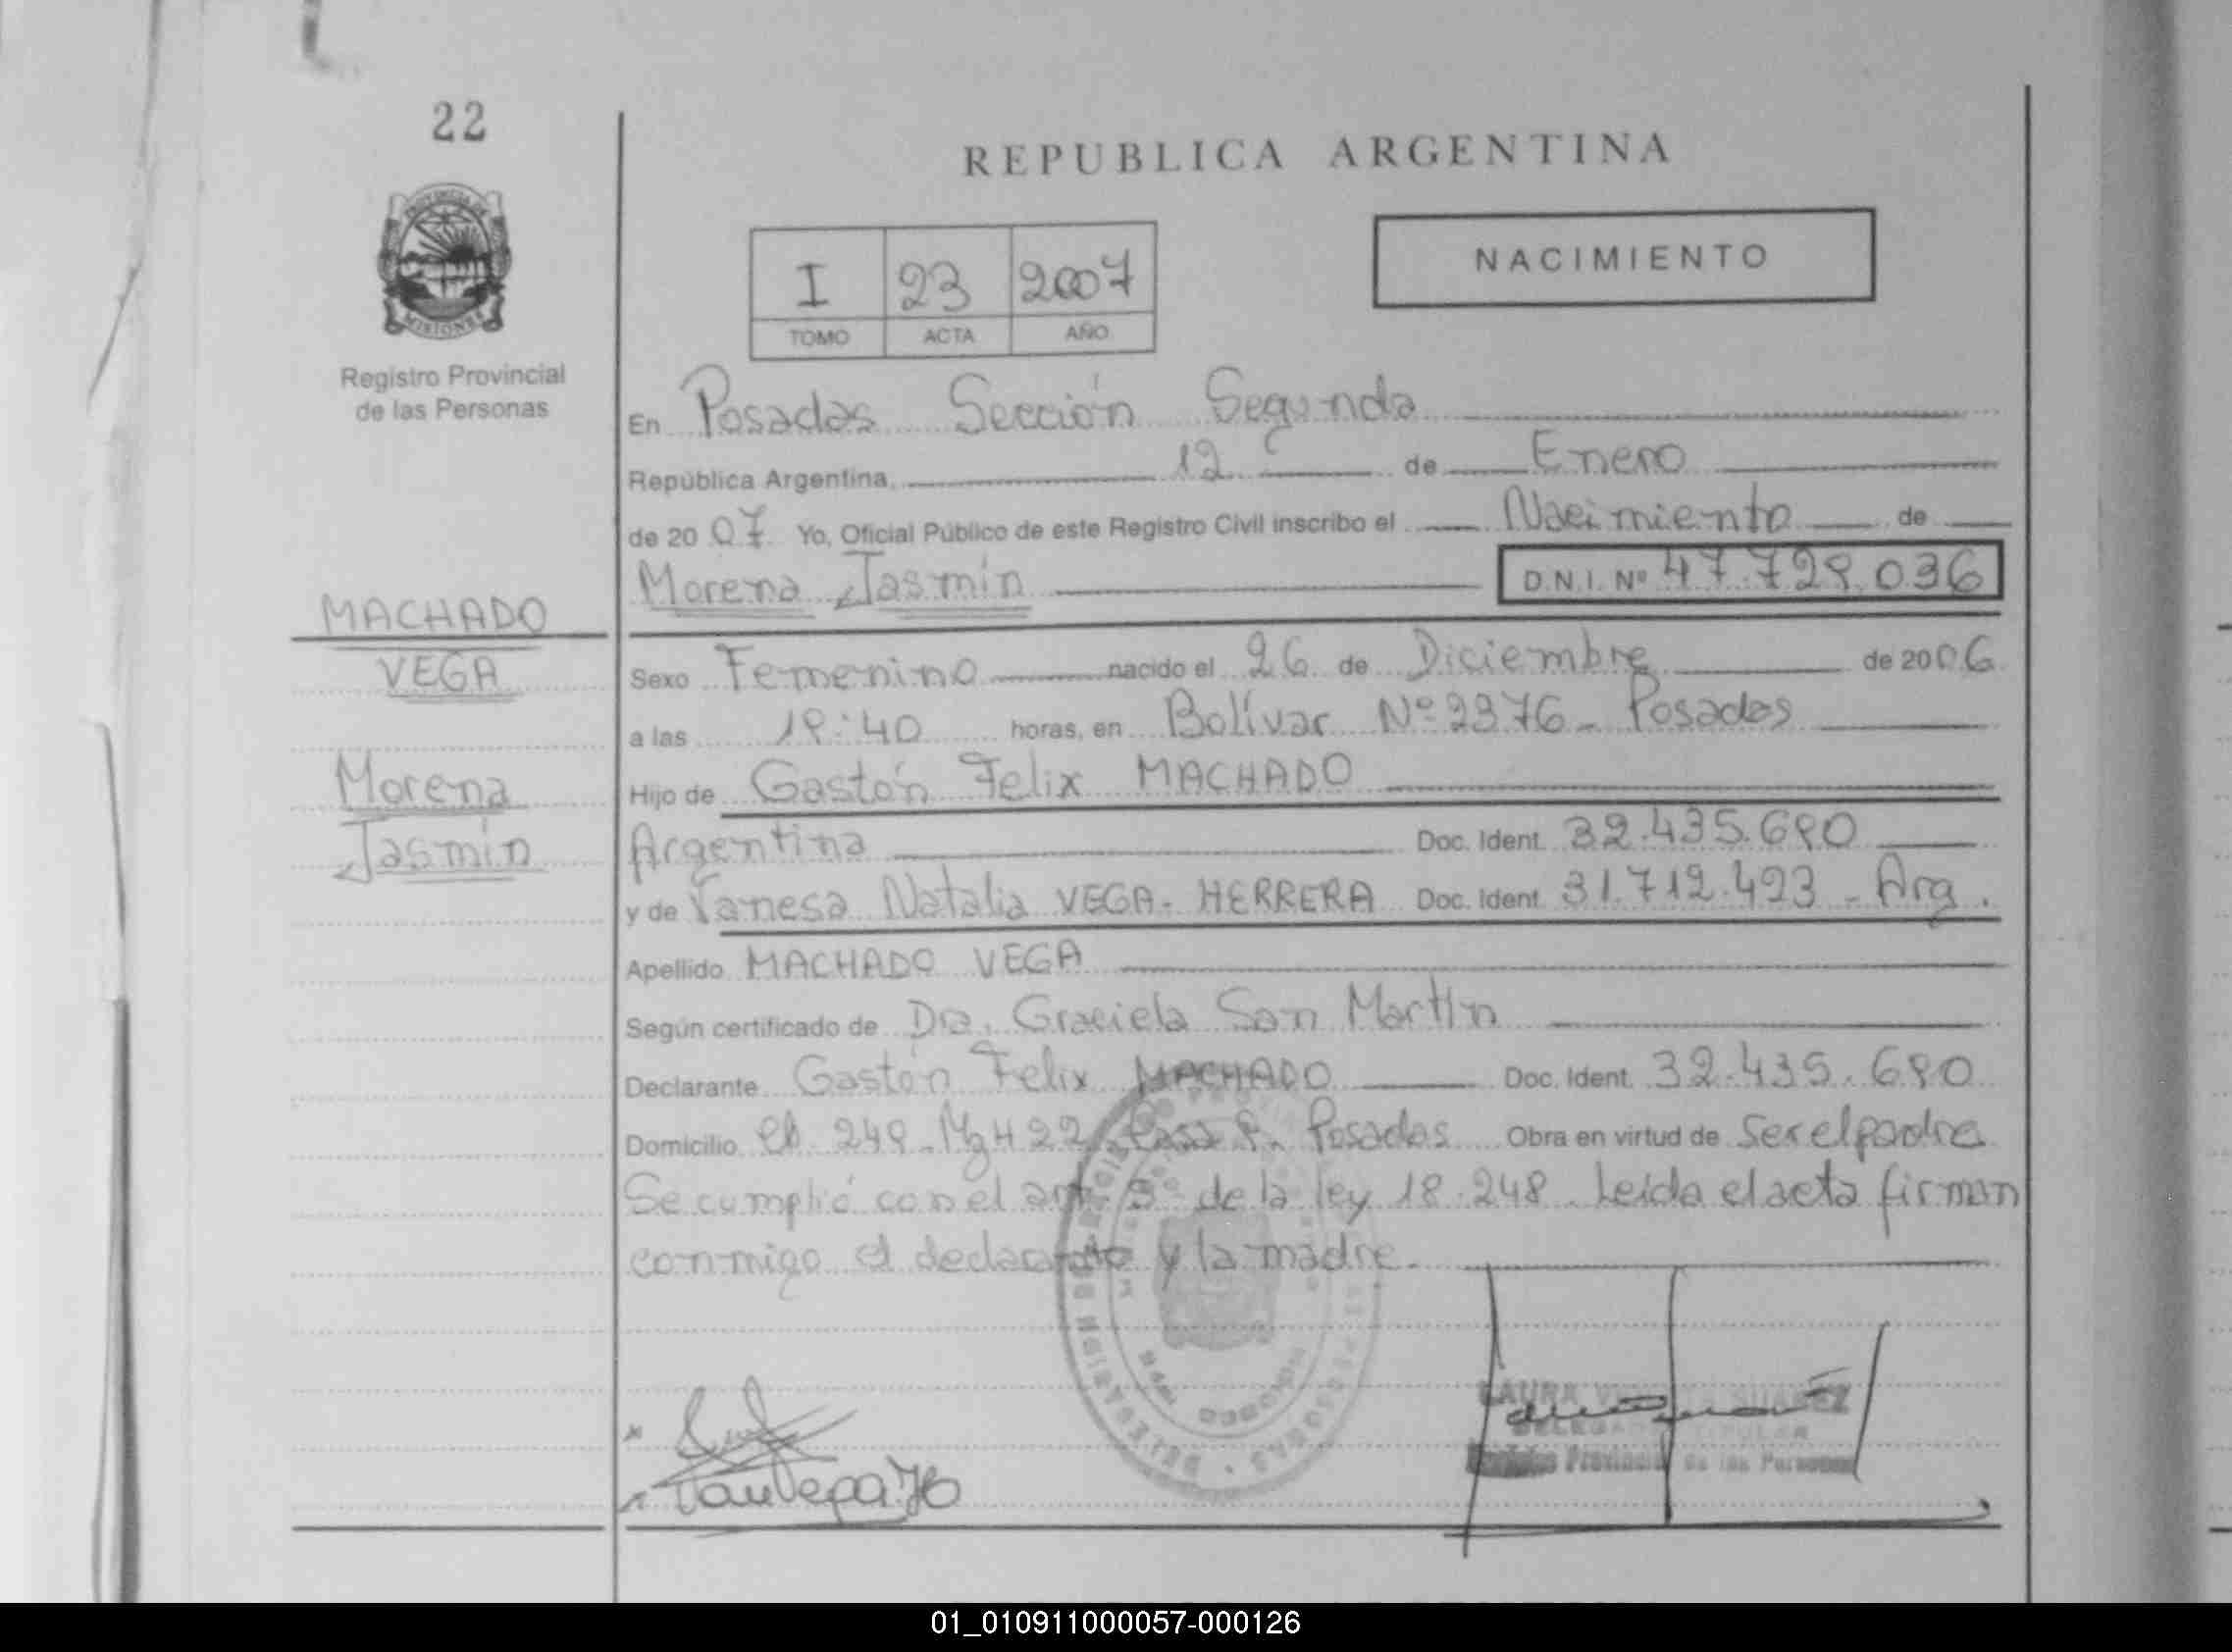 22
REPUBLICA ARGENTINA
PROVINCIA DE
MISIONES
Registro Provincial
de las Personas
I 23 2007
TOMO ACTA AÑO
NACIMIENTO
En Posadas Sección Segunda
República Argentina, 12 de Enero
de 2007 Yo, Oficial Público de este Registro Civil inscribo el Nacimiento de
Morena Jasmín D.N.I. Nº 47.729.036
MACHADO
VEGA
Morena
Jasmín
Sexo Femenino nacido el 26 de Diciembre de 2006
a las 19:40 horas, en Bolívar Nº 2376 - Posadas
Hijo de Gastón Felix MACHADO
Argentina Doc. Ident. 32.435.690
y de Vanesa Natalia VEGA - HERRERA Doc. Ident. 31.712.493 - Arg.
Apellido MACHADO VEGA
Según certificado de Dra. Graciela San Martín
Declarante Gastón Felix MACHADO Doc. Ident. 32.435.690
Domicilio Posadas Obra en virtud de ser el padre
Se cumplió con el art. de la ley 18.248. Leída el acta firman
conmigo el declarante y la madre.
LAURA SUAREZ
Provincial de las Personas
01_010911000057-000126